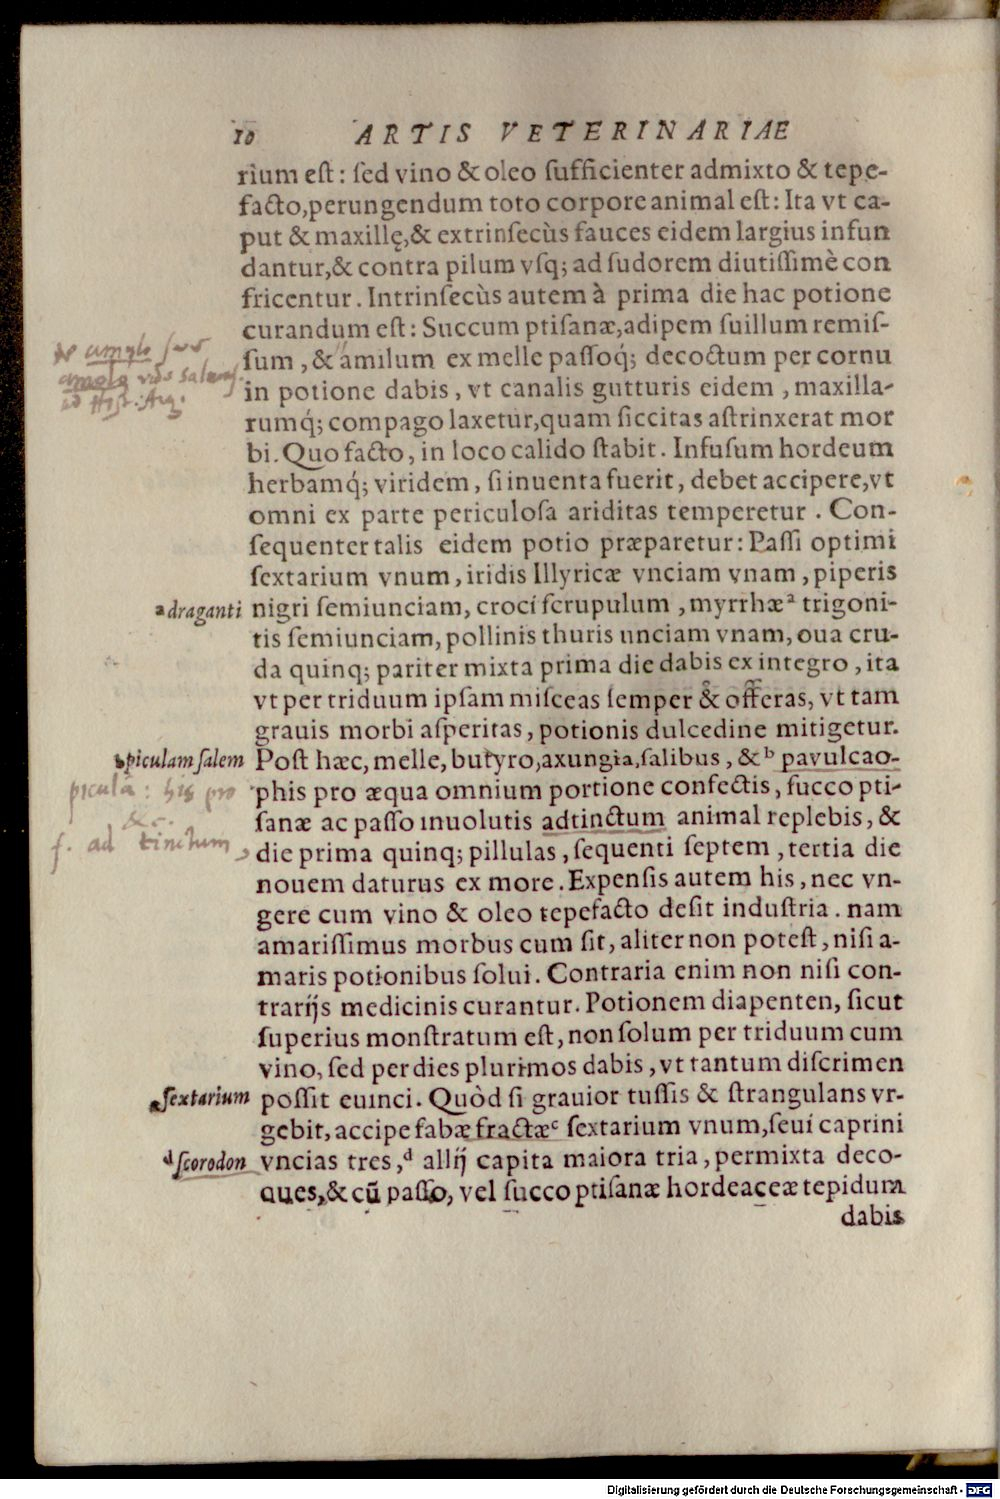 10 ARTIS VETERINARIAE
rium eſt: ſed vino & oleo ſufficienter admixto & tepe-
facto,perungendum toto corpore animal eſt: Ita vt ca-
put & maxillę,& extrinſecùs fauces eidem largius infun
dantur,& contra pilum vſq; ad ſudorem diutiſſimè con
fricentur. Intrinſecùs autem à prima die hac potione
curandum eſt: Succum ptiſanæ,adipem ſuillum remiſ-
ſum, & amilum ex melle paſſoq́; decoctum per cornu
in potione dabis, vt canalis gutturis eidem, maxilla-
rumq́; compago laxetur,quam ſiccitas aſtrinxerat mor
bi. Quo facto, in loco calido ſtabit. Infuſum hordeum
herbamq́; viridem, ſi inuenta fuerit, debet accipere,vt
omni ex parte periculoſa ariditas temperetur. Con-
ſequenter talis eidem potio præparetur: Paſſi optimi
ſextarium vnum, iridis Illyricæ vnciam vnam, piperis
nigri ſemiunciam, croci ſcrupulum, myrrhæ ᵃ trigoni-
tis ſemiunciam, pollinis thuris unciam vnam, oua cru-
da quinq; pariter mixta prima die dabis ex integro, ita
vt per triduum ipſam miſceas ſemper & offeras, vt tam
grauis morbi aſperitas, potionis dulcedine mitigetur.
Poſt hæc, melle, butyro,axungia,ſalibus, & ᵇ pavulcao-
phis pro æqua omnium portione confectis, ſucco pti-
ſanæ ac paſſo inuolutis adtinctum animal replebis, &
die prima quinq; pillulas, ſequenti ſeptem, tertia die
nouem daturus ex more. Expenſis autem his, nec vn-
gere cum vino & oleo tepefacto deſit induſtria. nam
amariſſimus morbus cum ſit, aliter non poteſt, niſi a-
maris potionibus ſolui. Contraria enim non niſi con-
trarijs medicinis curantur. Potionem diapenten, ſicut
ſuperius monſtratum eſt, non ſolum per triduum cum
vino, ſed per dies plurimos dabis, vt tantum diſcrimen
poſſit euinci. Quòd ſi grauior tuſſis & ſtrangulans vr-
gebit, accipe fabæ fractæ ᶜ ſextarium vnum, ſeui caprini
vncias tres, ᵈ allij capita maiora tria, permixta deco-
ques, & cū paſſo, vel ſucco ptiſanæ hordeaceæ tepidum
dabis
de amylo
amola salmas.
ᵃ draganti
ᵇ piculam ſalem
piculā: his pro
&c.
f. ad tinctum
ſextarium
ᵈ ſcorodon
Digitalisierung gefördert durch die Deutsche Forschungsgemeinschaft - DFG